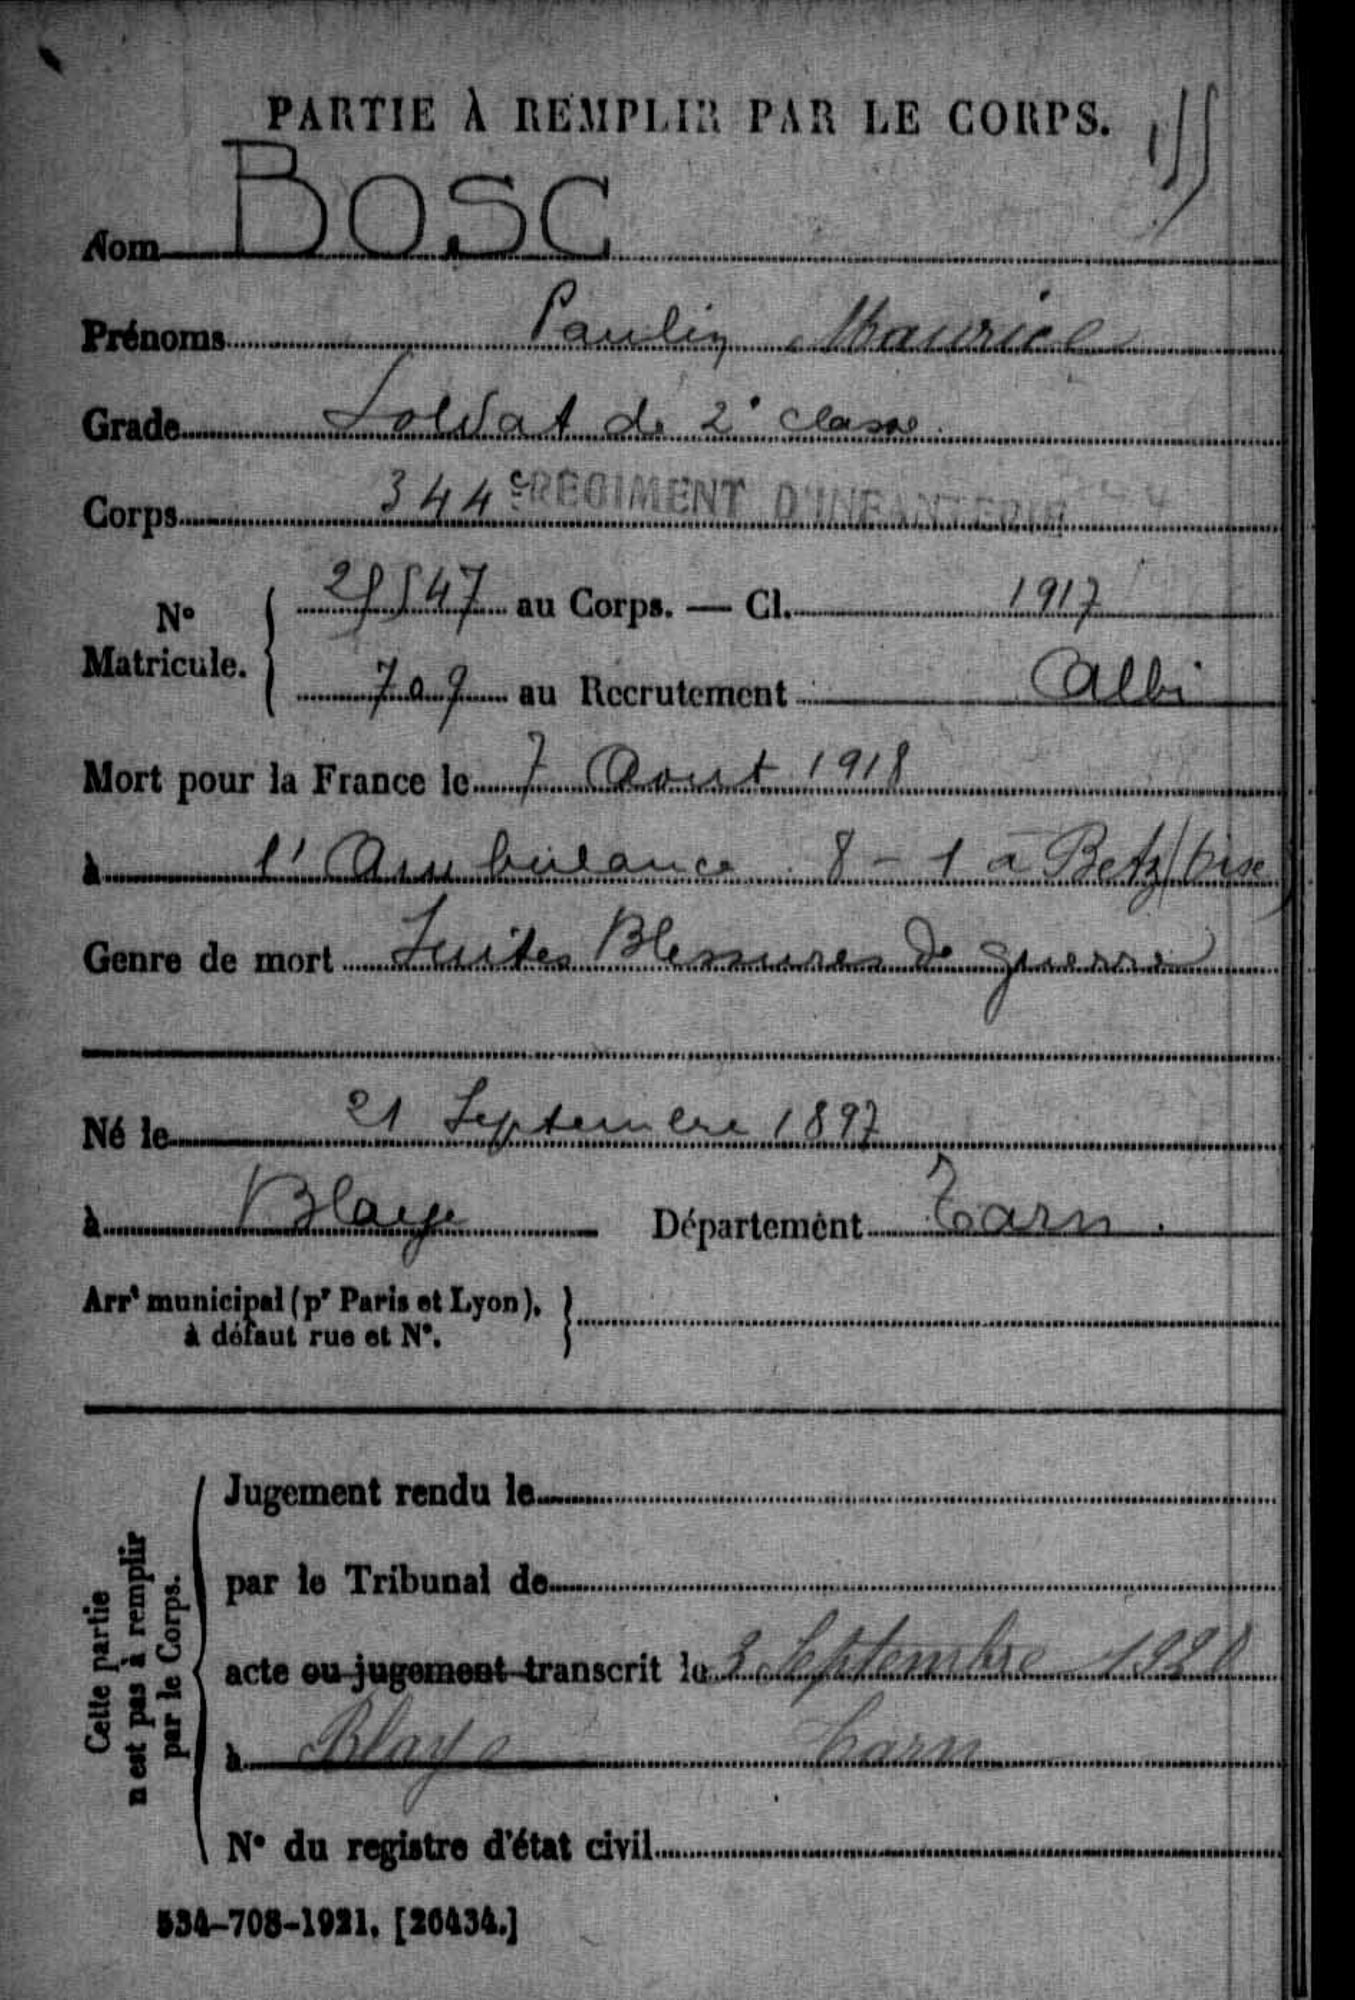 PARTIE À REMPLIR PAR LE CORPS.
Nom BOSC
Prénoms Paulin Maurice
Grade Soldat de 2e classe
Corps 344e RÉGIMENT D'INFANTERIE
N° Matricule.
au Corps. — Cl. 1917
709 au Recrutement Albi
Mort pour la France le 7 Aout 1918
à l'Ambulance 8-1 à Betz (Oise)
Genre de mort Suites Blessures de guerre
Né le 21 Septembre 1897
à Blaye Département Tarn.
Arrt municipal (pr Paris et Lyon),
à défaut rue et N°.
Cette partie
n'est pas à remplir
par le Corps.
Jugement rendu le
par le Tribunal de
acte ou jugement transcrit le 3 Septembre
à Blaye Tarn
N° du registre d'état civil
534-708-1921. [26434.]